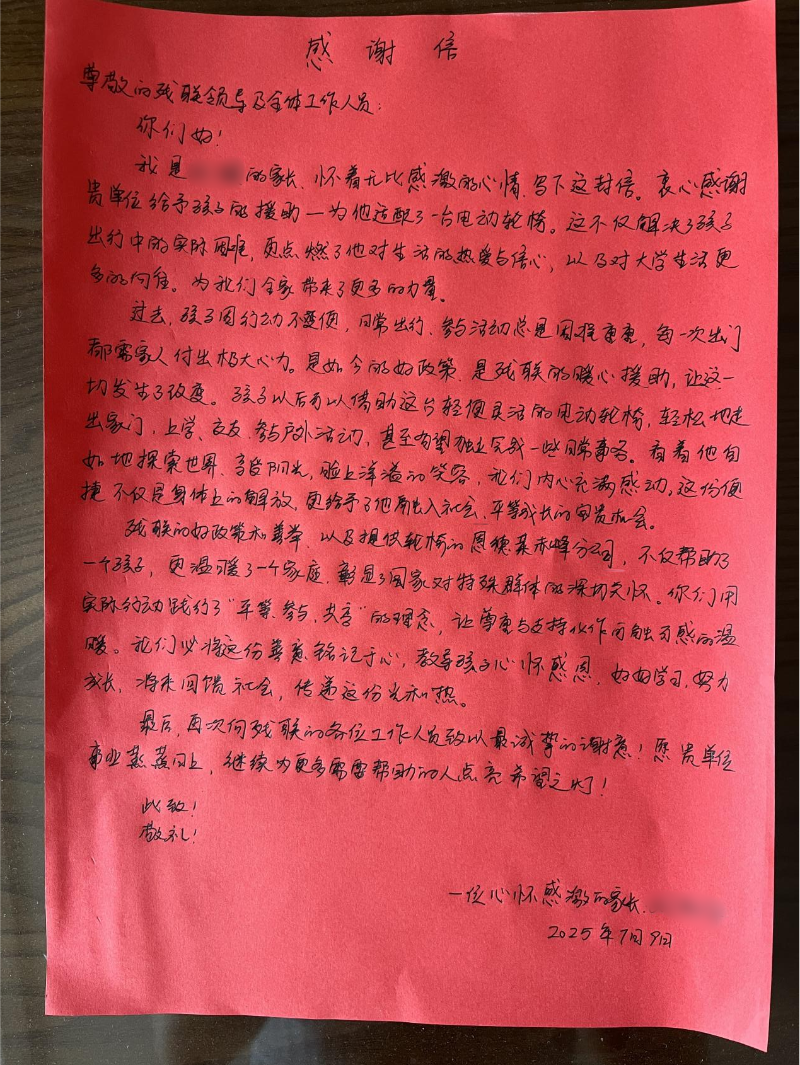 感谢信
尊敬的残联领导及全体工作人员:
你们好!
我是 的家长,怀着无比感激的心情,写下这封信。衷心感谢
贵单位给予孩子的援助一为他适配了一台电动轮椅。这不仅解决了孩子
出行中的实际困难,更点燃了他对生活的热爱与信心,以及对大学生活更
多的向往。为我们全家带来了更多的力量。
过去,孩子因行动不便,日常出行、参与活动总是困难重重,每一次出门
都需家人付出极大心力。是如今的好政策、是残联的暖心援助,让这一
切发生了改变。孩子以后可以借助这台轻便灵活的电动轮椅,轻松地走
出家门,上学、交友、参与户外活动,甚至有望独立完成一些日常事务。看着他自
如地探索世界、享受阳光,脸上洋溢的笑容,我们内心充满感动,这份便
捷不仅是身体上的解放,更给予了他融入社会、平等成长的宝贵机会。
残联的好政策和善举,以及提供轮椅的恩德莱赤峰分公司,不仅帮助了
一个孩子,更温暖了一个家庭,彰显了国家对特殊群体的深切关怀。你们用
实际行动践行了“平等、参与、共享”的理念,让尊重与支持化作可触可感的温
暖。我们必将这份善意铭记于心,教导孩子心怀感恩,好好学习,努力
成长,将来回馈社会,传递这份光和热。
最后,再次向残联的各位工作人员致以最诚挚的谢意!愿贵单位
事业蒸蒸日上,继续为更多需要帮助的人点亮希望之灯!
此致!
敬礼!
一位心怀感激的家长
2025年7月9日